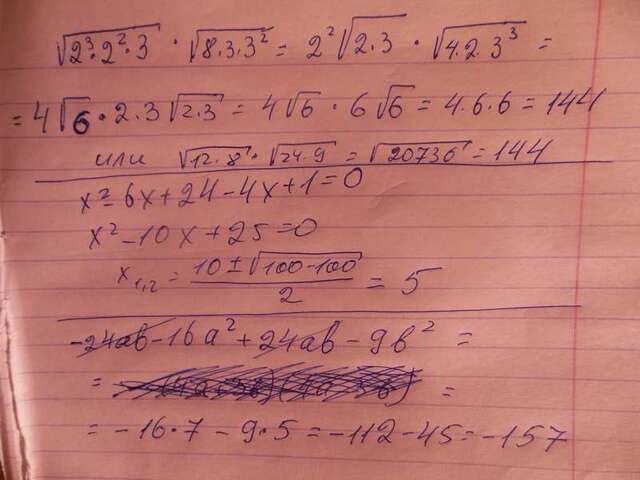 √2³·2²·3 · √8·3·3² = 2²√2·3 · √4·2·3³ =
= 4√6 · 2·3√2·3 = 4√6 · 6√6 = 4·6·6 = 144
или √12·8 · √24·9 = √20736 = 144
x² - 6x + 24 - 4x + 1 = 0
x² - 10x + 25 = 0
x₁,₂ = (10 ± √100-100) / 2 = 5
-24ab - 16a² + 24ab - 9b² =
= =
= -16·7 - 9·5 = -112 - 45 = -157